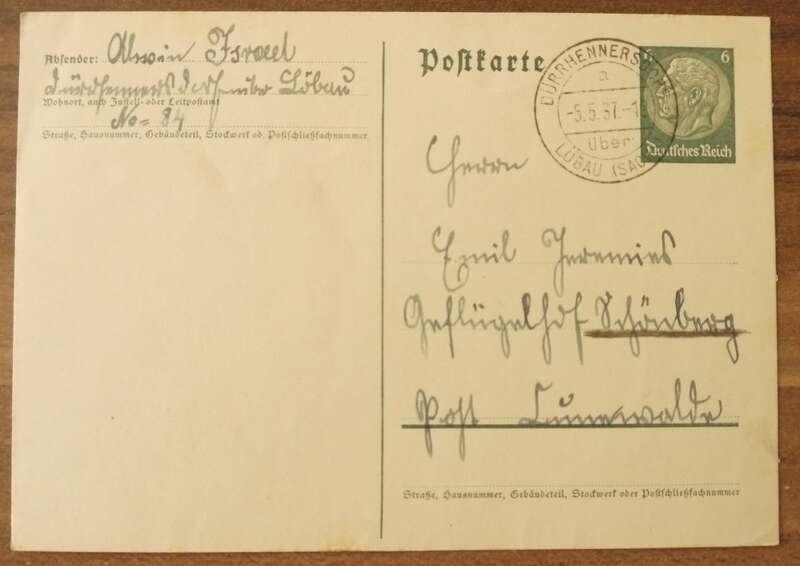 Absender: Alwin Israel
Dürrhennersdorf über Löbau
Wohnort, auch Zustell- oder Leitpostamt
No= 84
Straße, Hausnummer, Gebäudeteil, Stockwerk od. Postschließfachnummer
Postkarte
DÜRRHENNERSDORF
a
-5.5.37.-1
über
LÖBAU (SACHS)
6 6
Deutsches Reich
Herrn
Emil Jeremies
Geflügelhof Schönberg
Post Cunewalde
Straße, Hausnummer, Gebäudeteil, Stockwerk oder Postschließfachnummer